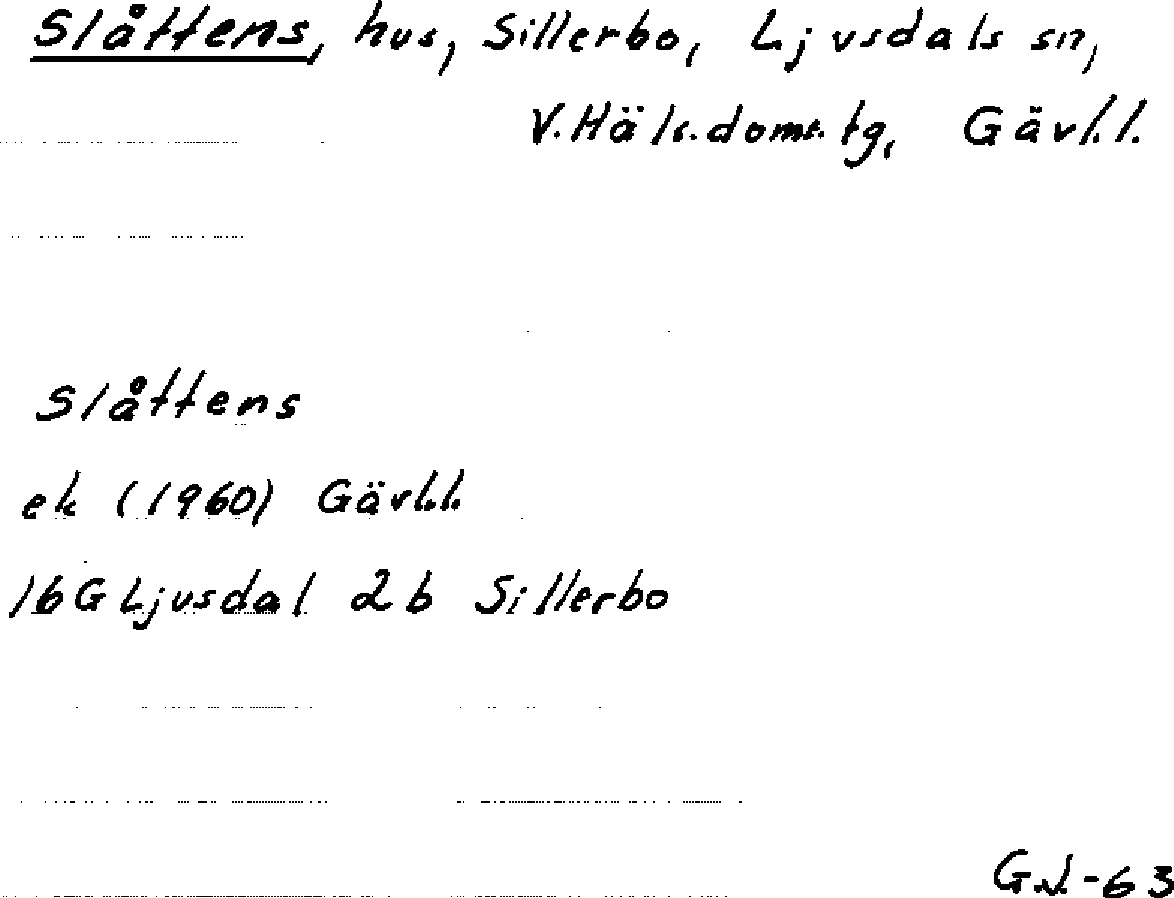 Slåttens, hus, Sillerbo, Ljusdals sn,
V. Häls. doms. tg, Gävl. l.
Slåttens
ek (1960) Gävl. l.
16G Ljusdal 2b Sillerbo
G.J. -63